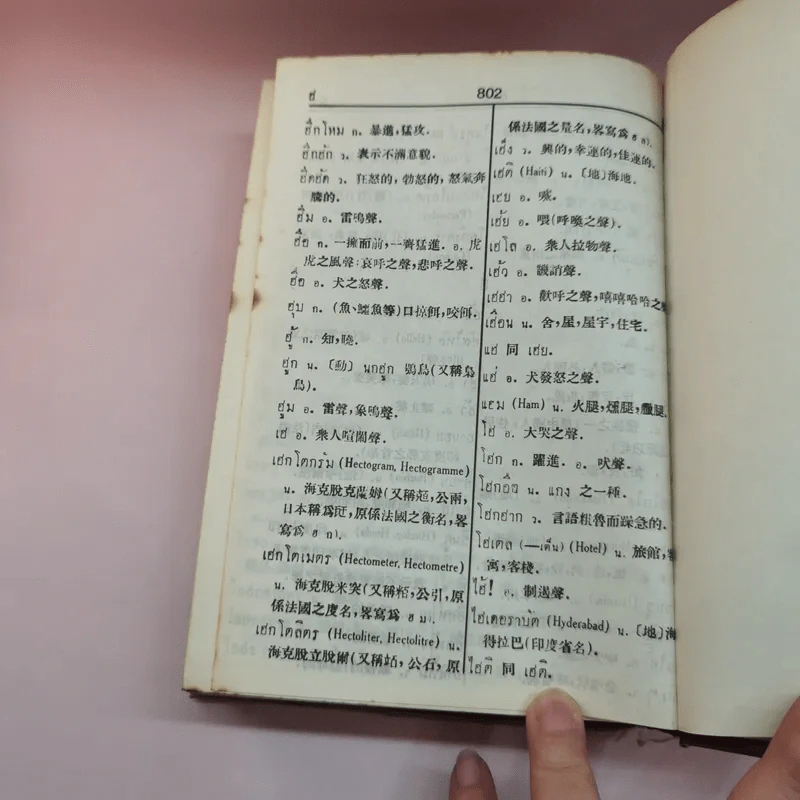 ฮ 802
ฮึกโหม ก. 暴進,猛攻.
ฮึกฮัก ว. 表示不滿意貌.
ฮึดฮัด ว. 狂怒的,勃怒的,怒氣奔
騰的.
ฮึม อ. 雷鳴聲.
ฮือ ก. 一擁而前,一齊猛進. อ. 虎
虎之風聲:哀呼之聲,悲呼之聲.
ฮื่อ อ. 犬之怒聲.
ฮุบ ก. (魚、鱷魚等)口掠餌,咬餌.
ฮู้ ก. 知,曉.
ฮูก น. 〔動〕 นกฮูก 鴞鳥(又稱梟
鳥).
ฮูม อ. 雷聲,象鳴聲.
เฮ อ. 衆人喧鬧聲.
เฮกโตกรัม (Hectogram, Hectogramme)
น. 海克脫克蘭姆(又稱兝,公兩,
日本稱爲瓸,原係法國之衡名,畧
寫爲 ฮ ก).
เฮกโตเมตร (Hectometer, Hectometre)
น. 海克脫米突(又稱粨,公引,原
係法國之度名,畧寫爲 ฮ ม).
เฮกโตลิตร (Hectoliter, Hectolitre) น.
海克脫立脫爾(又稱竡,公石,原
係法國之量名,畧寫爲 ฮ ล).
เฮ็ง ว. 興的,幸運的,佳運的.
เฮติ (Haiti) น. 〔地〕海地.
เฮย อ. 嘅.
เฮ้ย อ. 喂(呼喚之聲).
เฮโล อ. 衆人拉物聲.
เฮ้ว อ. 譏誚聲.
เฮฮา อ. 歡呼之聲,嘻嘻哈哈之
เฮือน น. 舍,屋,屋宇,住宅.
แฮ 同 เฮย.
แฮ่ อ. 犬發怒之聲.
แฮม (Ham) น. 火腿,燻腿,臘腿.
โฮ อ. 大哭之聲.
โฮก ก. 躍進. อ. 吠聲.
โฮกฮือ น. แกง 之一種.
โฮกฮาก ว. 言語粗魯而躁急的.
โฮเตล (—เต็น) (Hotel) น. 旅館,客
寓,客棧.
ไฮ้! อ. 制逐聲.
ไฮเดอราบัด (Hyderabad) น. 〔地〕海
得拉巴(印度省名).
ไฮติ 同 เฮติ.